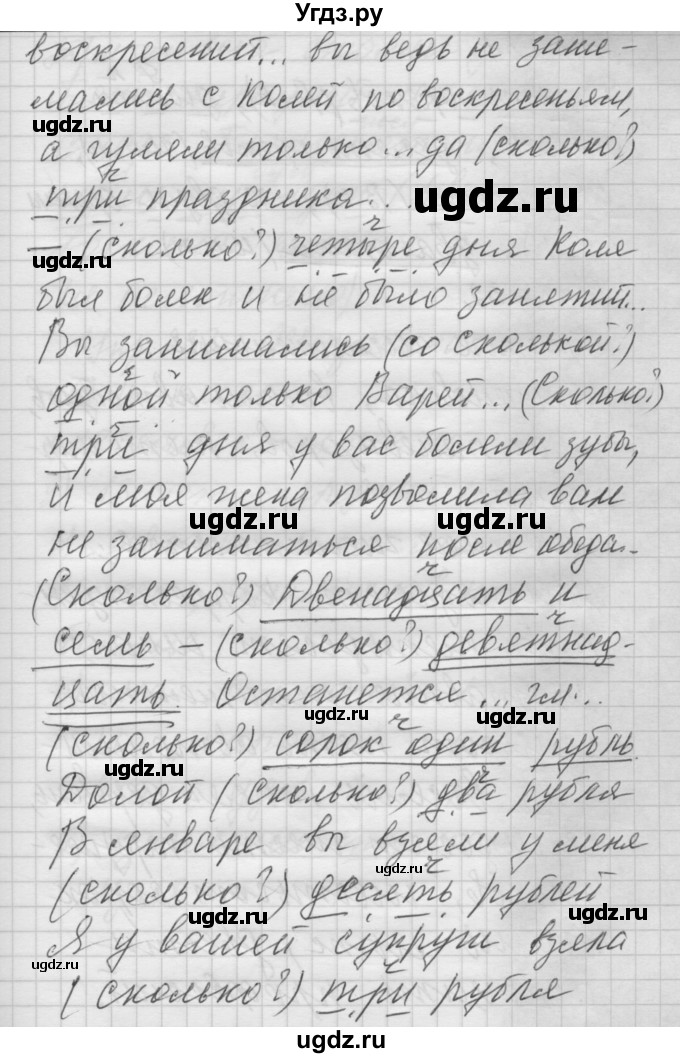 Угдз.ру
воскресений... вы ведь не зани-
мались с Колей по воскресеньям,
ugdz.ru ugdz.ru
а гуляли только... да (сколько?)
ч
три праздника... ugdz.ru
ч
– (сколько?) четыре дня Коля
ugdz.ru
был болен и не было занятий..
Вы занимались (со сколькой?)
ч
одной только Варей... (Сколько?)
ч
три дня у вас болели зубы,
и моя жена позволила вам
ugdz.ru ugdz.ru
не заниматься после обеда..
ч
(Сколько?) Двенадцать и
ч
семь – (сколько?) девятнад-
цать. Останется... гм...
ugdz.ru ugdz.ru
ч
(сколько?) сорок один рубль.
ugdz.ru
ч
Долой (сколько?) два рубля
В январе вы взяли у меня
ч ugdz.ru
(сколько?) десять рублей
ugdz.ru ugdz.ru
Я у вашей супруги взяла
ugdz.ru
ч
(сколько?) три рубля
ugdz.ru